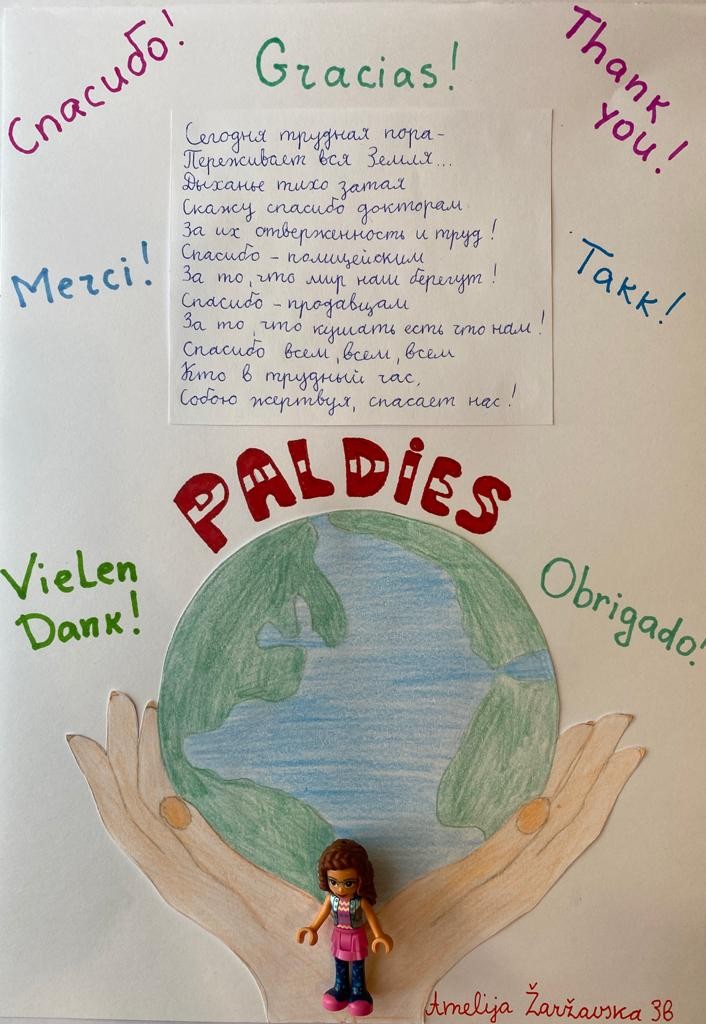 Спасибо!
Gracias!
Thank
you!
Сегодня трудная пора-
Переживает вся Земля...
Дыханье тихо затая
Скажу спасибо докторам
За их отверженность и труд!
Спасибо - полицейским
За то, что мир наш берегут!
Спасибо - продавцам
За то, что кушать есть что нам!
Спасибо всем, всем, всем
Кто в трудный час,
Собою жертвуя, спасает нас!
Merci!
Takk!
PALDiES
Vielen
Dank!
Obrigado!
Amelija Žaržavska 3B